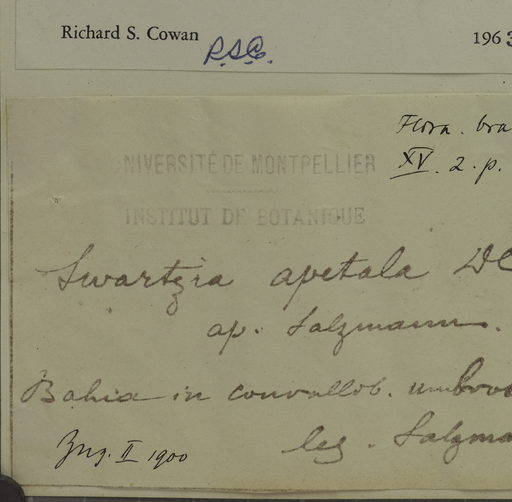 Richard S. Cowan R.S.C. 1963
Flora. bra
XV. 2. p.
UNIVERSITÉ DE MONTPELLIER
INSTITUT DE BOTANIQUE
Swartzia apetala DC
ap. Salzmann.
Bahia in convallib. umbro
leg. Salzma
II 1900